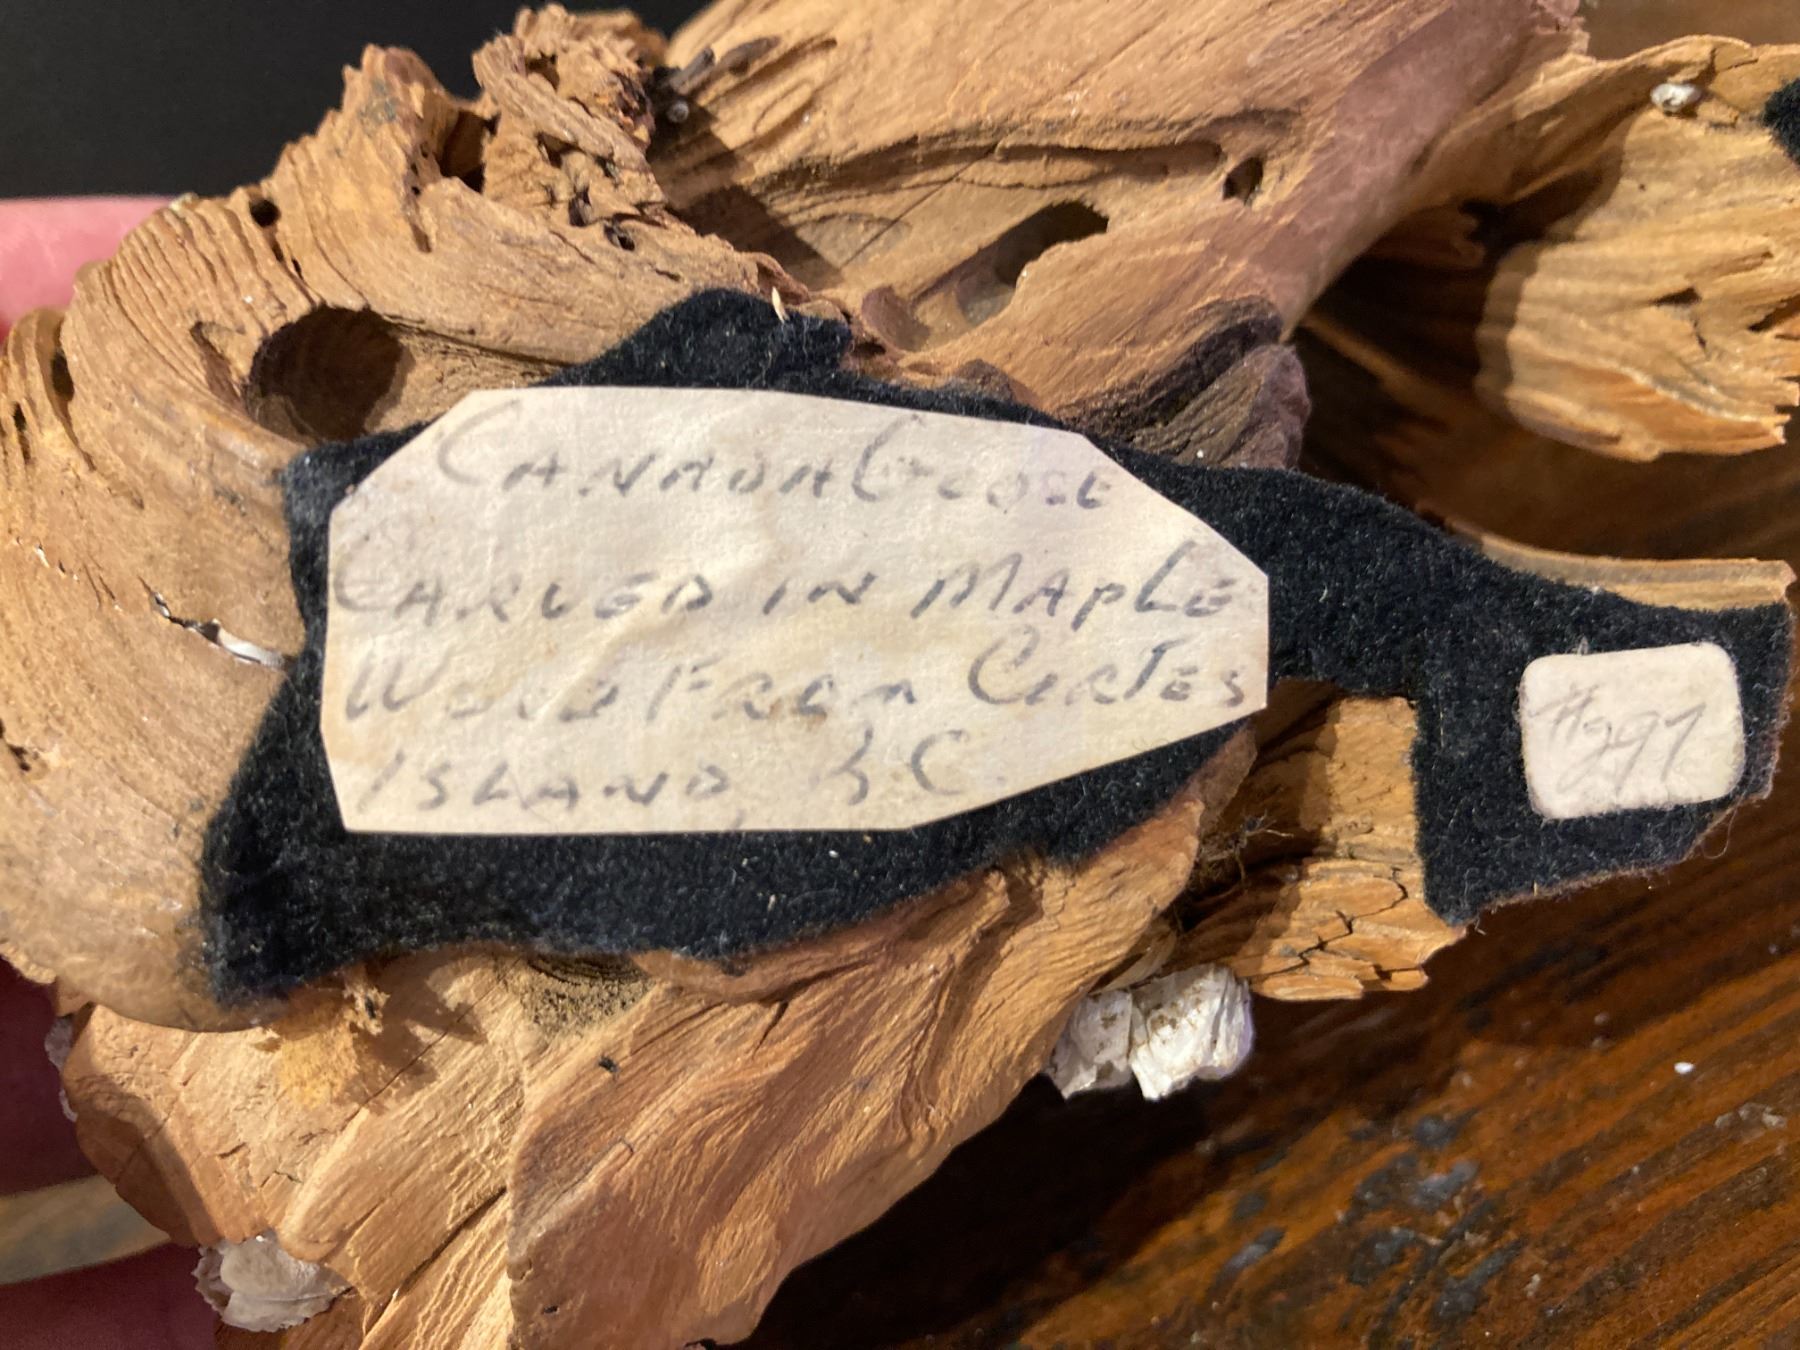 CANADA GOOSE
CARVED IN MAPLE
WOOD FROM CORTES
ISLAND, B C
#297